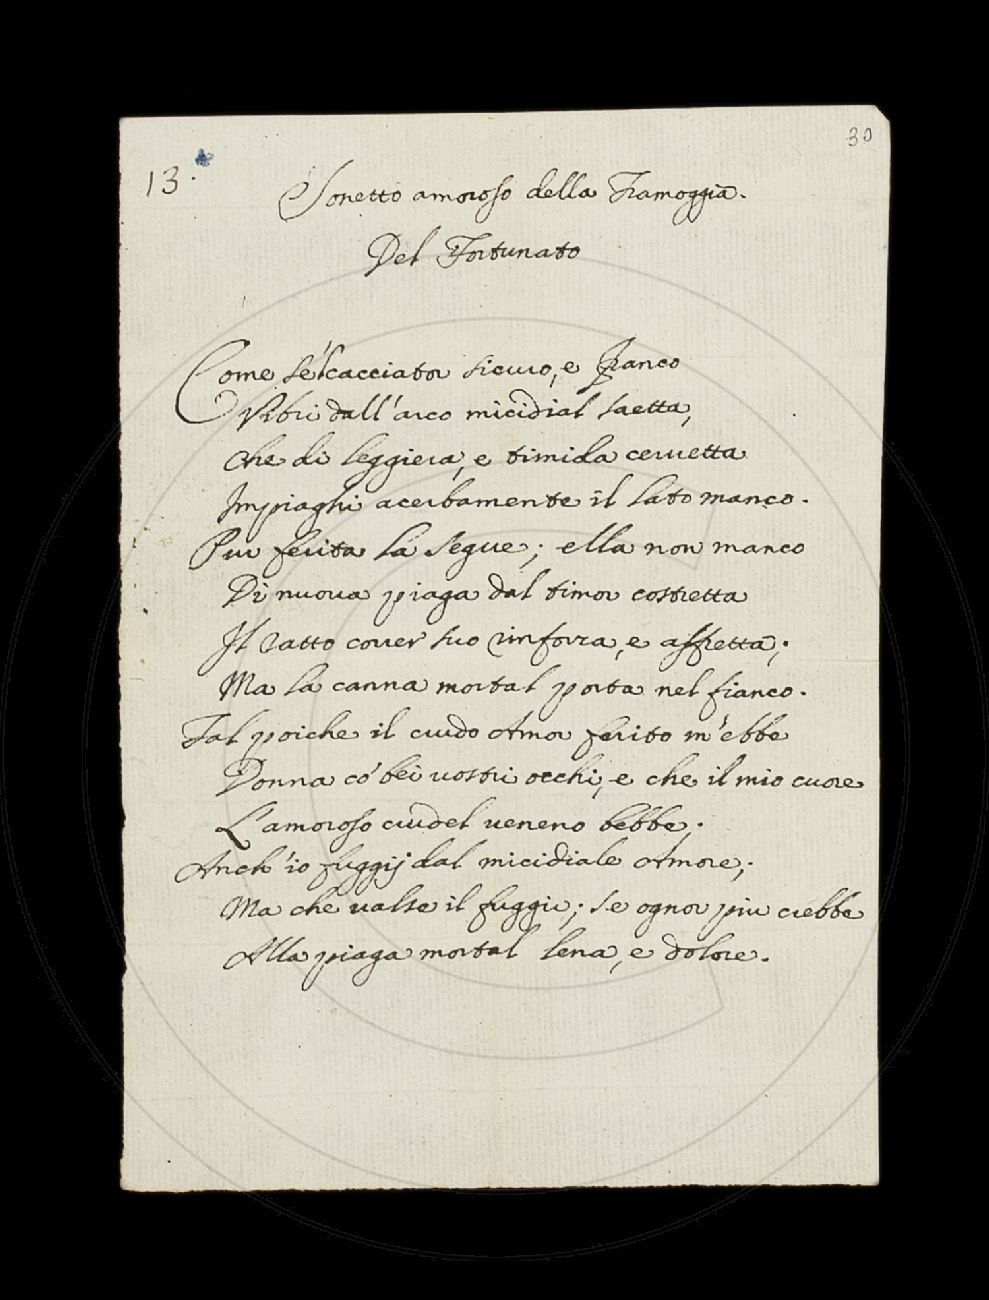 30
13.
Sonetto amoroso della Tramoggia.
Del Fortunato
Come se'l cacciator sicuro, e franco
Vibri dall'arco micidial saetta,
Che di leggiera, e timida cervetta
Impiaghi acerbamente il lato manco.
Pur ferita la segue; ella non manco
Di nuova piaga dal timor costretta
Il ratto correr suo rinforza, e affretta;
Ma la canna mortal porta nel fianco.
Tal poiche il crudo Amor ferito m'ebbe
Donna co' bei vostri occhi, e che il mio cuore
L'amoroso crudel veneno bebbe;
Anch'io fuggij dal micidiale Amore;
Ma che valse il fuggir; se ognor piu crebbe
Alla piaga mortal lena, e dolore.